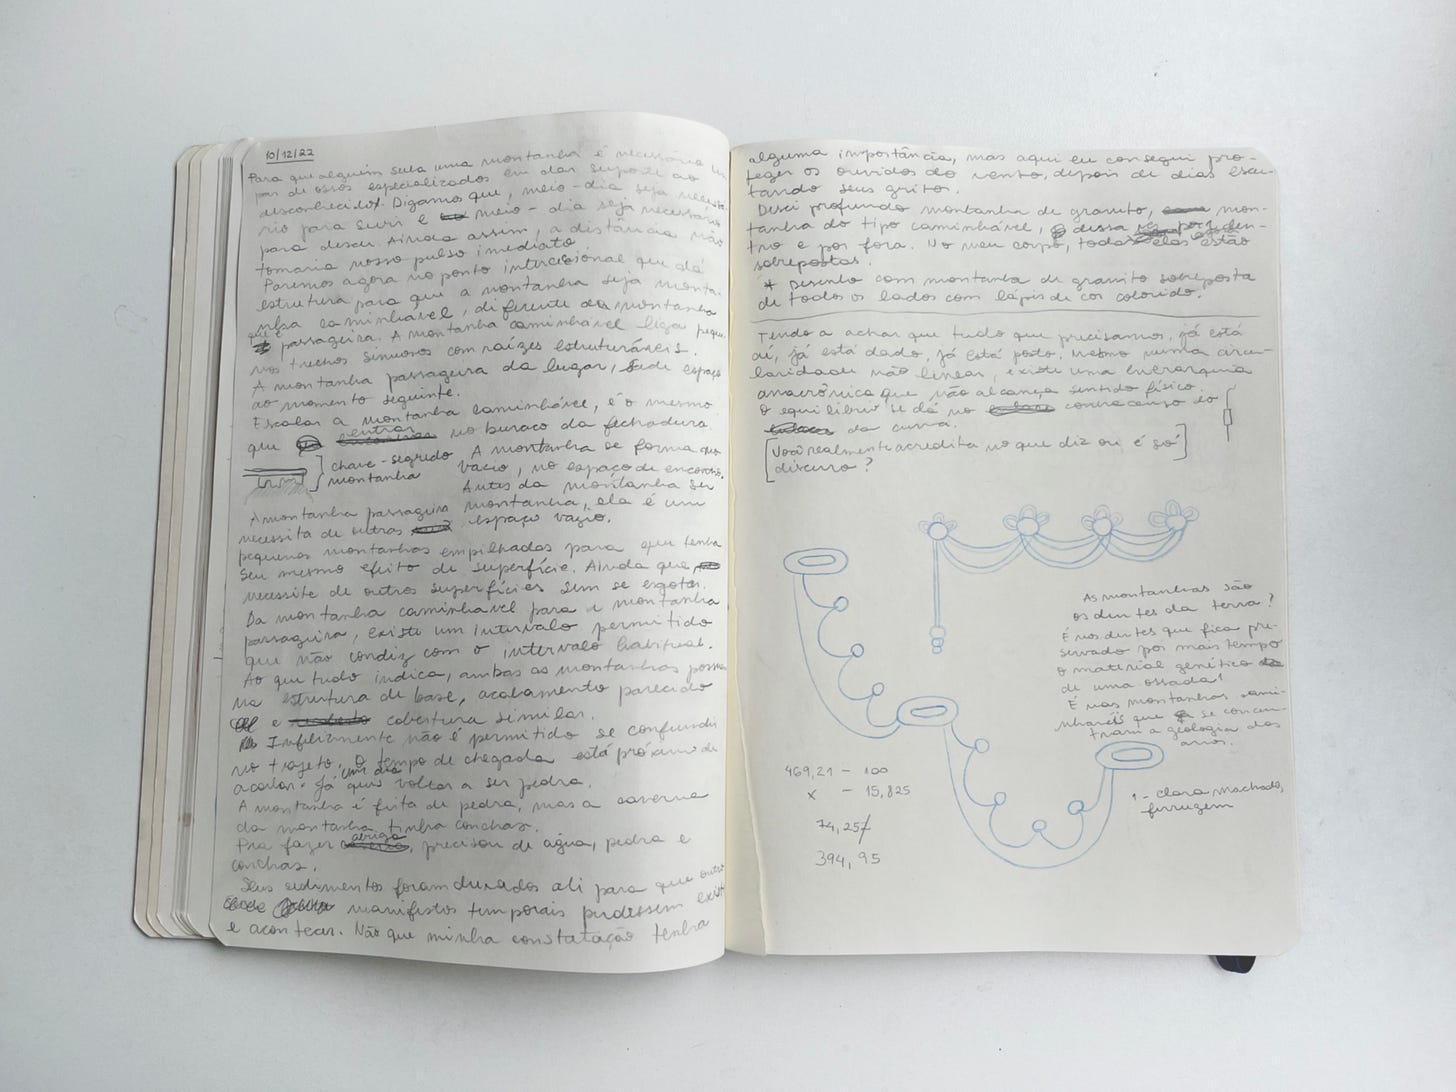 10/12/22
Para que alguém suba uma montanha é necessário um
par de ossos especializados em dar suporte ao
desconhecido. Digamos que, meio-dia seja necessá-
rio para subir e meio-dia seja necessário
para descer. Ainda assim, a distância não
tomaria nosso pulso imediato.
Paremos agora no ponto interseccional que dá
estrutura para que a montanha seja monta-
nha caminhável, diferente da montanha
que é passageira. A montanha caminhável liga peque-
nos trechos sinuosos com raízes estruturáveis.
A montanha passageira da lugar, cede espaço
ao momento seguinte.
Escalar a montanha caminhável, é o mesmo
que entrar no buraco da fechadura.
chave-segredo
montanha
A montanha se forma no
vazio, no espaço de encontro.
Antes da montanha ser
montanha, ela é um
espaço vazio.
A montanha passageira
necessita de outras
pequenas montanhas empilhadas para que tenha
seu mesmo efeito de superfície. Ainda que
necessite de outras superfícies sem se esgotar.
Da montanha caminhável para a montanha
passageira, existe um intervalo permitido
que não condiz com o intervalo habitual.
Ao que tudo indica, ambas as montanhas possuem
na estrutura de base, acabamento parecido
e cobertura similar.
Infelizmente não é permitido se confundir
no trajeto. O tempo de chegada está próximo de
acabar. Já quis um dia voltar a ser pedra.
A montanha é feita de pedra, mas a caverna
da montanha tinha conchas.
Pra fazer abrigo, precisou de água, pedra e
conchas.
Seus sedimentos foram durados ali para que outros
manifestos temporais pudessem existir
e acontecer. Não que minha constatação tenha
alguma importância, mas aqui eu consegui pro-
teger os ouvidos do vento, depois de dias escu-
tando seus gritos.
Desci profundo montanha de granito, mon-
tanha do tipo caminhável, dessa por den-
tro e por fora. No meu corpo, todas elas estão
sobrepostas.
* Desenho com montanha de granito sobreposta
de todos os lados com lápis de cor colorido.
Tendo a achar que tudo que precisamos, já está
aí, já está dado, já está posto. Mesmo numa circu-
laridade não linear, existe uma hierarquia
anacrônica que não alcança sentido físico.
O equilíbrio se dá no contra censo do
da curva.
[Você realmente acredita no que diz ou é só
discurso?]
As montanhas são
os dentes da terra?
É nos dentes que fica pre-
servado por mais tempo
o material genético
de uma ossada!
É nas montanhas cami-
nháveis que se concen-
tram a geologia dos
anos.
469,21 - 100
x - 15,825
74,257
394,95
1 - clara machado,
ferrugem